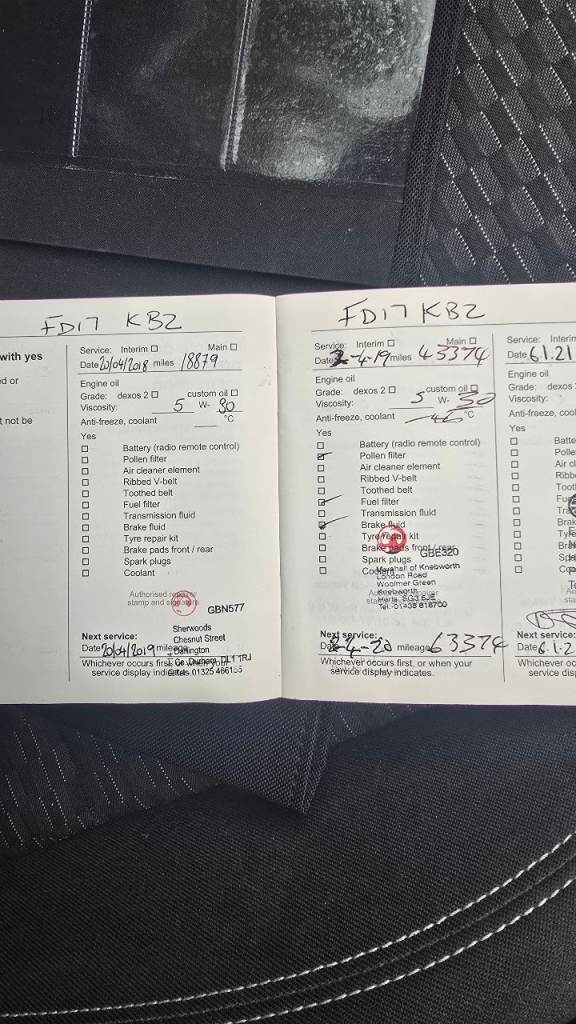 FD17 KBZ
with yes
t not be
Service: Interim Main
Date 20/04/2018 miles 18879
Engine oil
Grade: dexos 2 custom oil
Viscosity: 5 W- 30
Anti-freeze, coolant °C
Yes
Battery (radio remote control)
Pollen filter
Air cleaner element
Ribbed V-belt
Toothed belt
Fuel filter
Transmission fluid
Brake fluid
Tyre repair kit
Brake pads front / rear
Spark plugs
Coolant
Authorised repairer
stamp and signature
GBN577
Sherwoods
Chesnut Street
Darlington
Co. Durham DL1 1RJ
Tel. 01325 466155
Next service:
Date 20/04/2019 mileage
Whichever occurs first, or when your
service display indicates.
FD17 KBZ
Service: Interim Main
Date -4-19 miles 45374
Engine oil
Grade: dexos 2 custom oil
Viscosity: 5 W- 30
Anti-freeze, coolant -40 °C
Yes
Battery (radio remote control)
Pollen filter
Air cleaner element
Ribbed V-belt
Toothed belt
Fuel filter
Transmission fluid
Brake fluid
Tyre repair kit
Brake pads front / rear
Spark plugs
Coolant
GBE520
Marshall of Knebworth
London Road
Woolmer Green
Knebworth
Herts. SG3 6JE
Tel: 01438 818700
Next service:
Date -4-20 mileage 63374
Whichever occurs first, or when your
service display indicates.
Service: Interim
Date 6.1.21
Engine oil
Grade: dexos
Viscosity:
Anti-freeze, coo
Yes
Next service:
Date 6.1.2
Whichever oc
service dis